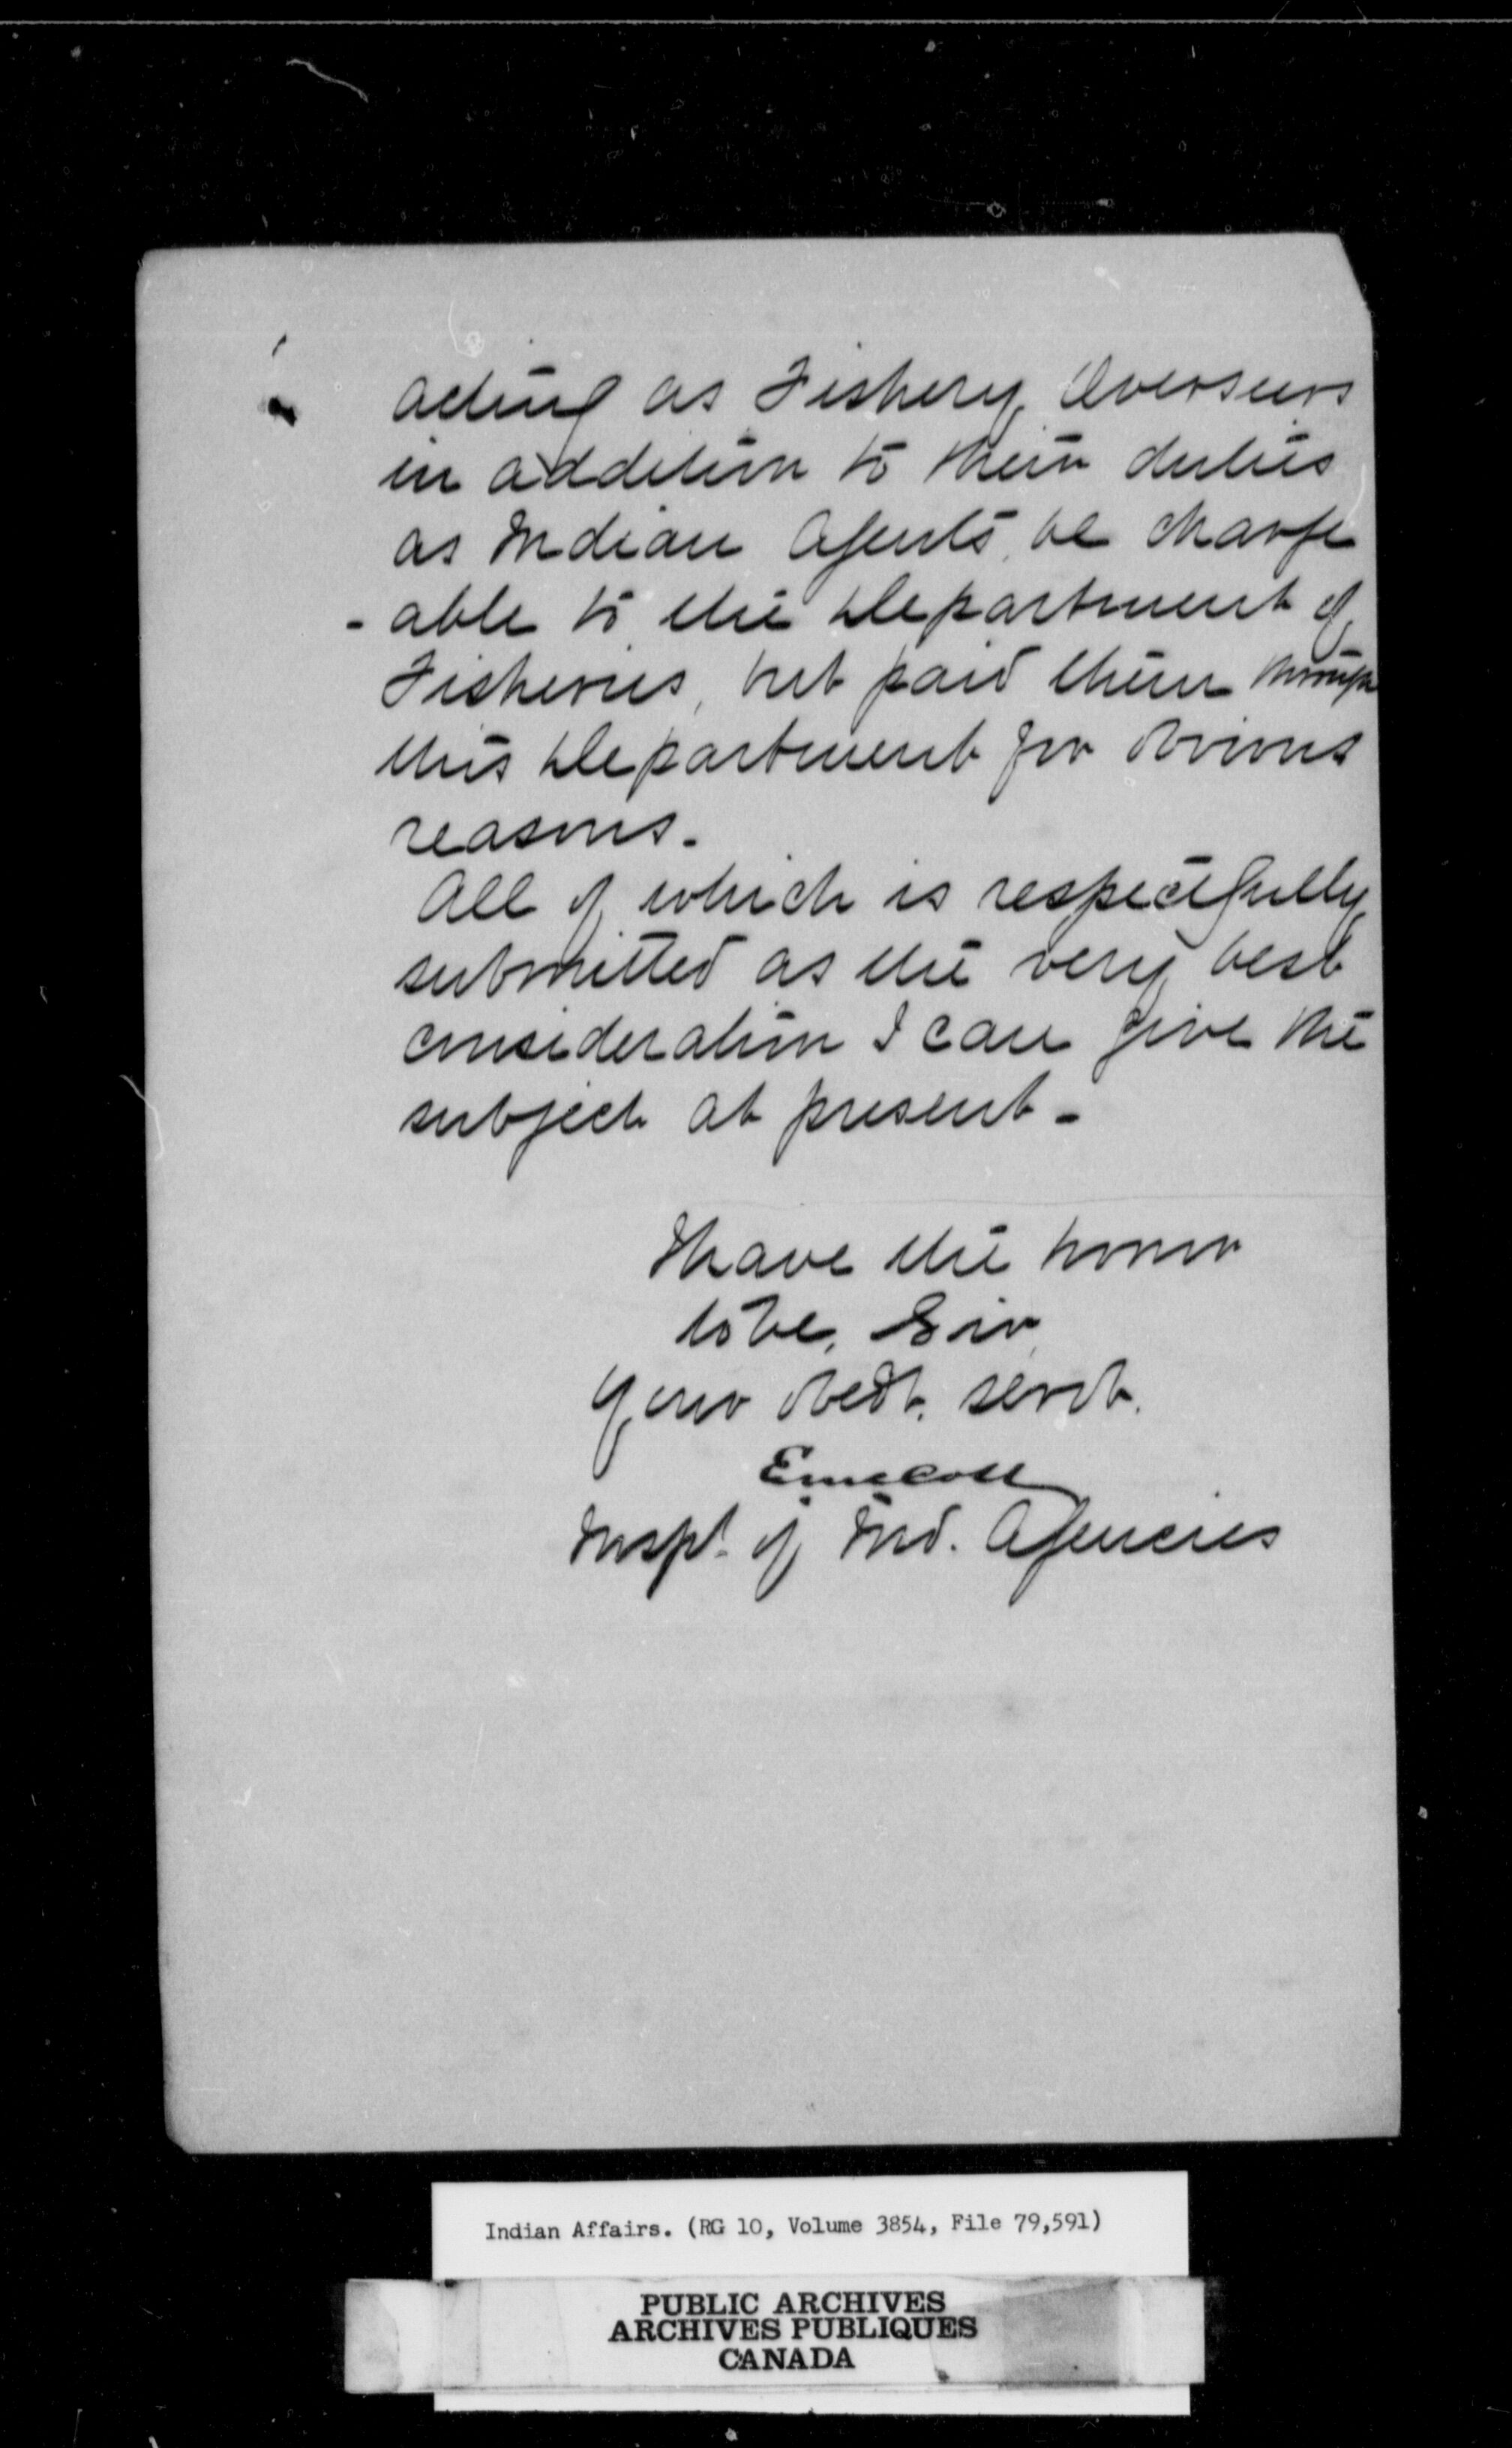 acting as Fishery Overseers
in addition to their duties
as Indian Agents, be charge
-able to the Department of
Fisheries, but paid them through
this Department for obvious
reasons.
All of which is respectfully
submitted as the very best
consideration I can give the
subject at present -
I have the honor
to be, Sir,
Your obedt. servt.
Inspt. of Ind. Agencies
Indian Affairs. (RG 10, Volume 3854, File 79,591)
PUBLIC ARCHIVES
ARCHIVES PUBLIQUES
CANADA